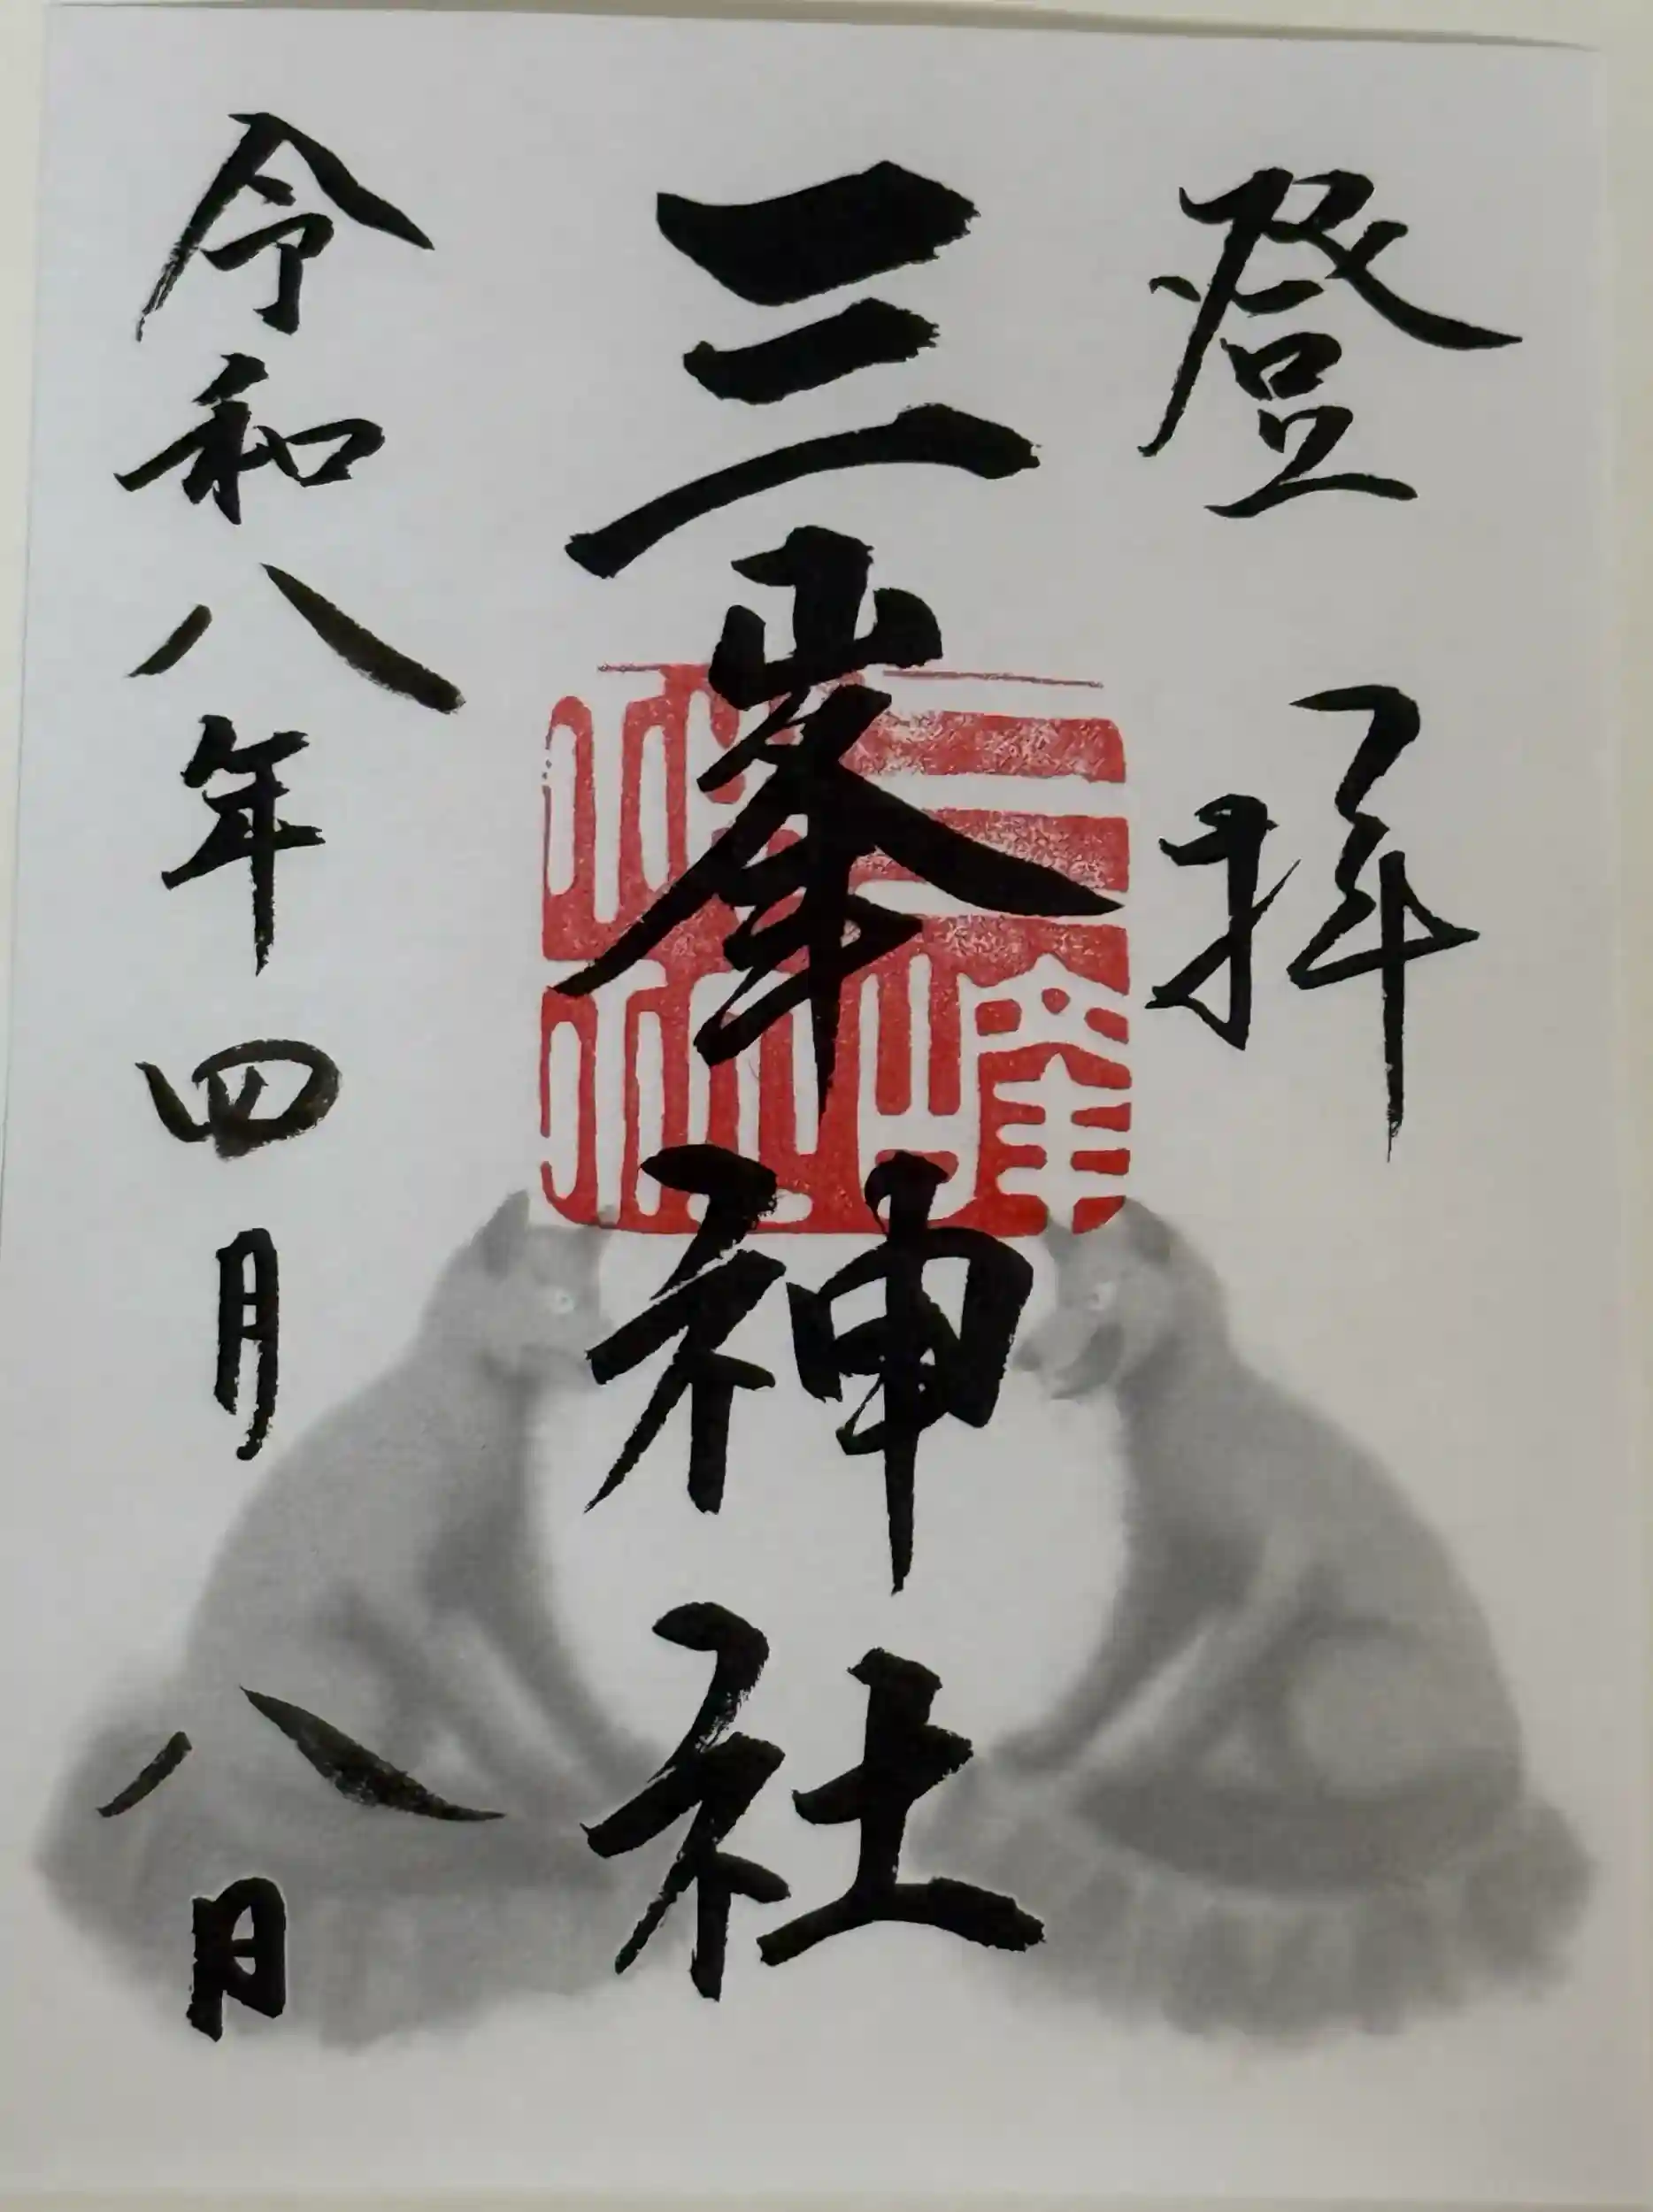 登拝
三峯神社
令和八年四月八日